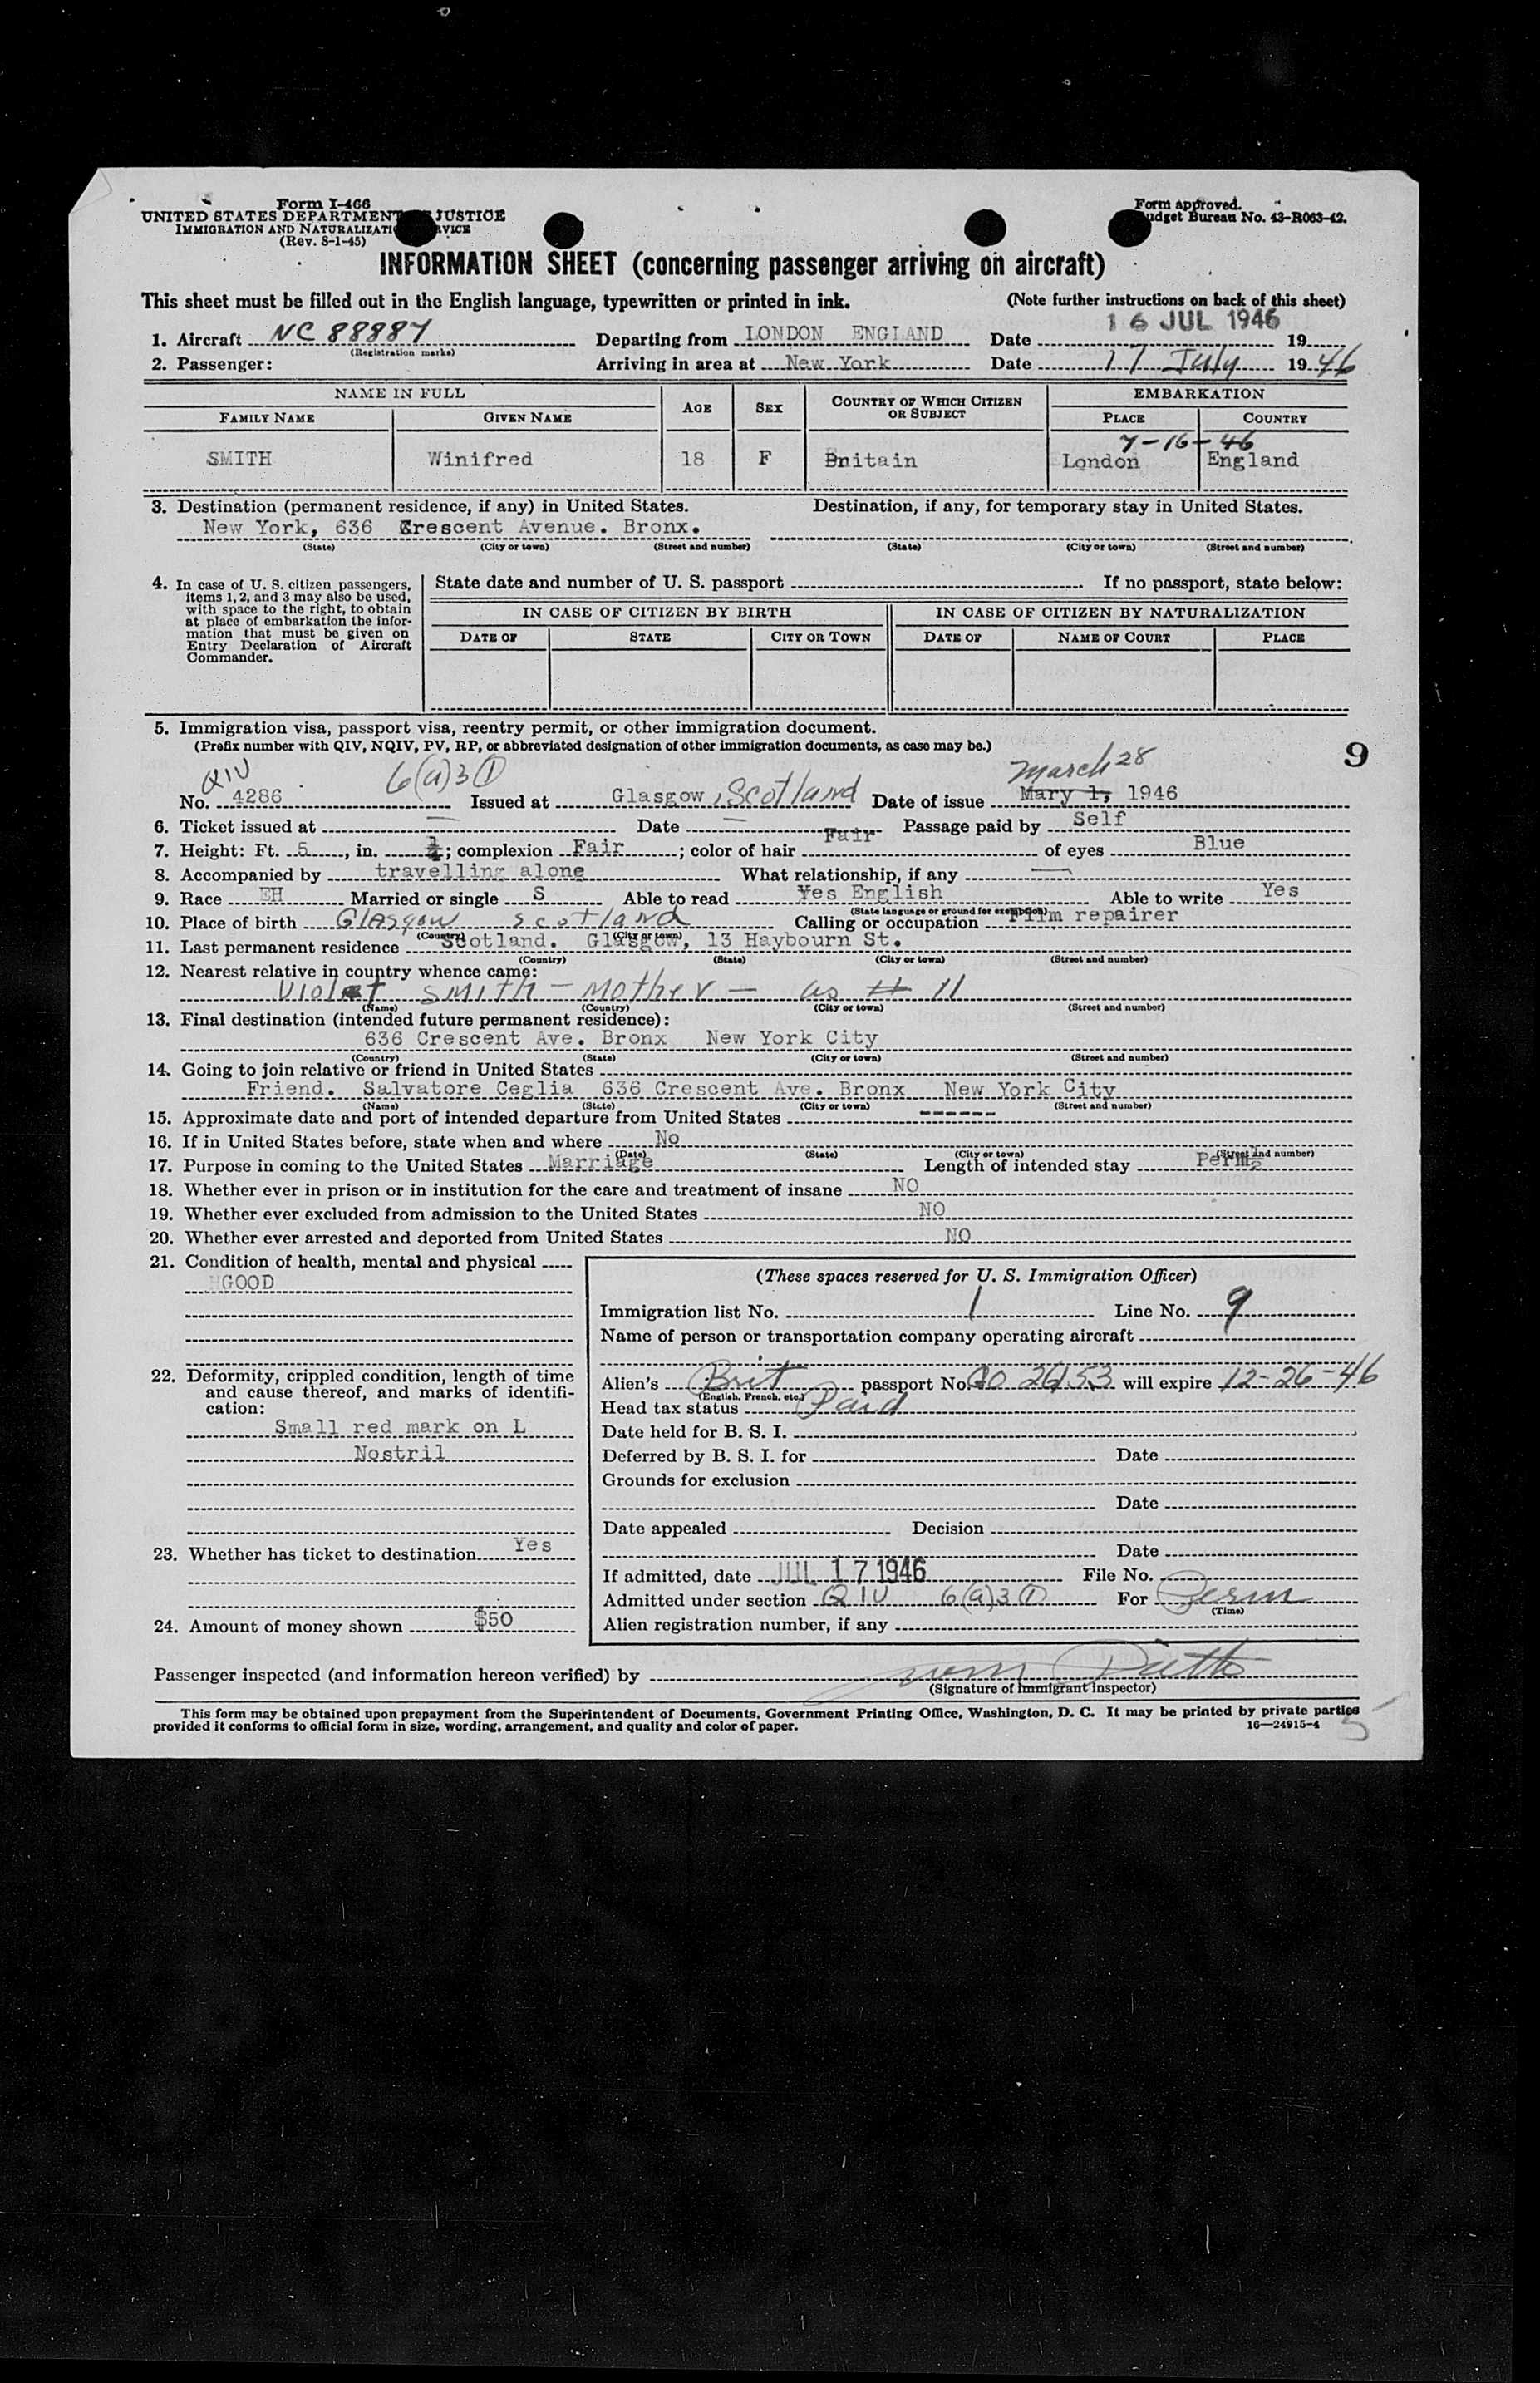 Form I-466
UNITED STATES DEPARTMENT JUSTICE
IMMIGRATION AND NATURALIZATI VICE
(Rev. 8-1-45)
Form approved.
udget Bureau No. 43-R063-42.
INFORMATION SHEET (concerning passenger arriving on aircraft)
This sheet must be filled out in the English language, typewritten or printed in ink. (Note further instructions on back of this sheet)
1. Aircraft NC 88887 Departing from LONDON ENGLAND Date 16 JUL 1946 19
(Registration marks)
2. Passenger: Arriving in area at New York Date 17 July 1946
NAME IN FULL AGE SEX COUNTRY OF WHICH CITIZEN OR SUBJECT EMBARKATION
FAMILY NAME GIVEN NAME PLACE COUNTRY
7-16-46
SMITH Winifred 18 F Britain London England
3. Destination (permanent residence, if any) in United States. Destination, if any, for temporary stay in United States.
New York, 636 Crescent Avenue. Bronx.
(State) (City or town) (Street and number) (State) (City or town) (Street and number)
4. In case of U. S. citizen passengers, items 1, 2, and 3 may also be used, with space to the right, to obtain at place of embarkation the information that must be given on Entry Declaration of Aircraft Commander.
State date and number of U. S. passport If no passport, state below:
IN CASE OF CITIZEN BY BIRTH IN CASE OF CITIZEN BY NATURALIZATION
DATE OF STATE CITY OR TOWN DATE OF NAME OF COURT PLACE
5. Immigration visa, passport visa, reentry permit, or other immigration document.
(Prefix number with QIV, NQIV, PV, RP, or abbreviated designation of other immigration documents, as case may be.)
9
QIV 6(a)3(1) March 28
No. 4286 Issued at Glasgow, Scotland Date of issue Mary 1, 1946
6. Ticket issued at — Date — Passage paid by Self
7. Height: Ft. 5, in. ; complexion Fair; color of hair Fair of eyes Blue
8. Accompanied by travelling alone What relationship, if any —
9. Race EH Married or single S Able to read Yes English Able to write Yes
(State language or ground for exemption)
10. Place of birth Glasgow Scotland Calling or occupation Film repairer
(Country) (City or town)
11. Last permanent residence Scotland. Glasgow, 13 Haybourn St.
(Country) (State) (City or town) (Street and number)
12. Nearest relative in country whence came:
Violet Smith - Mother - as # 11
(Name) (Country) (City or town) (Street and number)
13. Final destination (intended future permanent residence):
636 Crescent Ave. Bronx New York City
(Country) (State) (City or town) (Street and number)
14. Going to join relative or friend in United States
Friend. Salvatore Ceglia 636 Crescent Ave. Bronx New York City
(Name) (State) (City or town) (Street and number)
15. Approximate date and port of intended departure from United States ------
16. If in United States before, state when and where No
(Date) (State) (City or town) (Street and number)
17. Purpose in coming to the United States Marriage Length of intended stay Perm
18. Whether ever in prison or in institution for the care and treatment of insane NO
19. Whether ever excluded from admission to the United States NO
20. Whether ever arrested and deported from United States NO
21. Condition of health, mental and physical
GOOD
22. Deformity, crippled condition, length of time and cause thereof, and marks of identification:
Small red mark on L
Nostril
23. Whether has ticket to destination Yes
24. Amount of money shown $50
(These spaces reserved for U. S. Immigration Officer)
Immigration list No. 1 Line No. 9
Name of person or transportation company operating aircraft
Alien's Brit passport No. 26153 will expire 12-26-46
(English, French, etc.)
Head tax status Paid
Date held for B. S. I.
Deferred by B. S. I. for Date
Grounds for exclusion
Date
Date appealed Decision
Date
If admitted, date JUL 17 1946 File No.
Admitted under section QIV 6(a)3(1) For Perm
(Time)
Alien registration number, if any
Passenger inspected (and information hereon verified) by
(Signature of Immigrant Inspector)
This form may be obtained upon prepayment from the Superintendent of Documents, Government Printing Office, Washington, D. C. It may be printed by private parties
provided it conforms to official form in size, wording, arrangement, and quality and color of paper. 16—24915-4
5